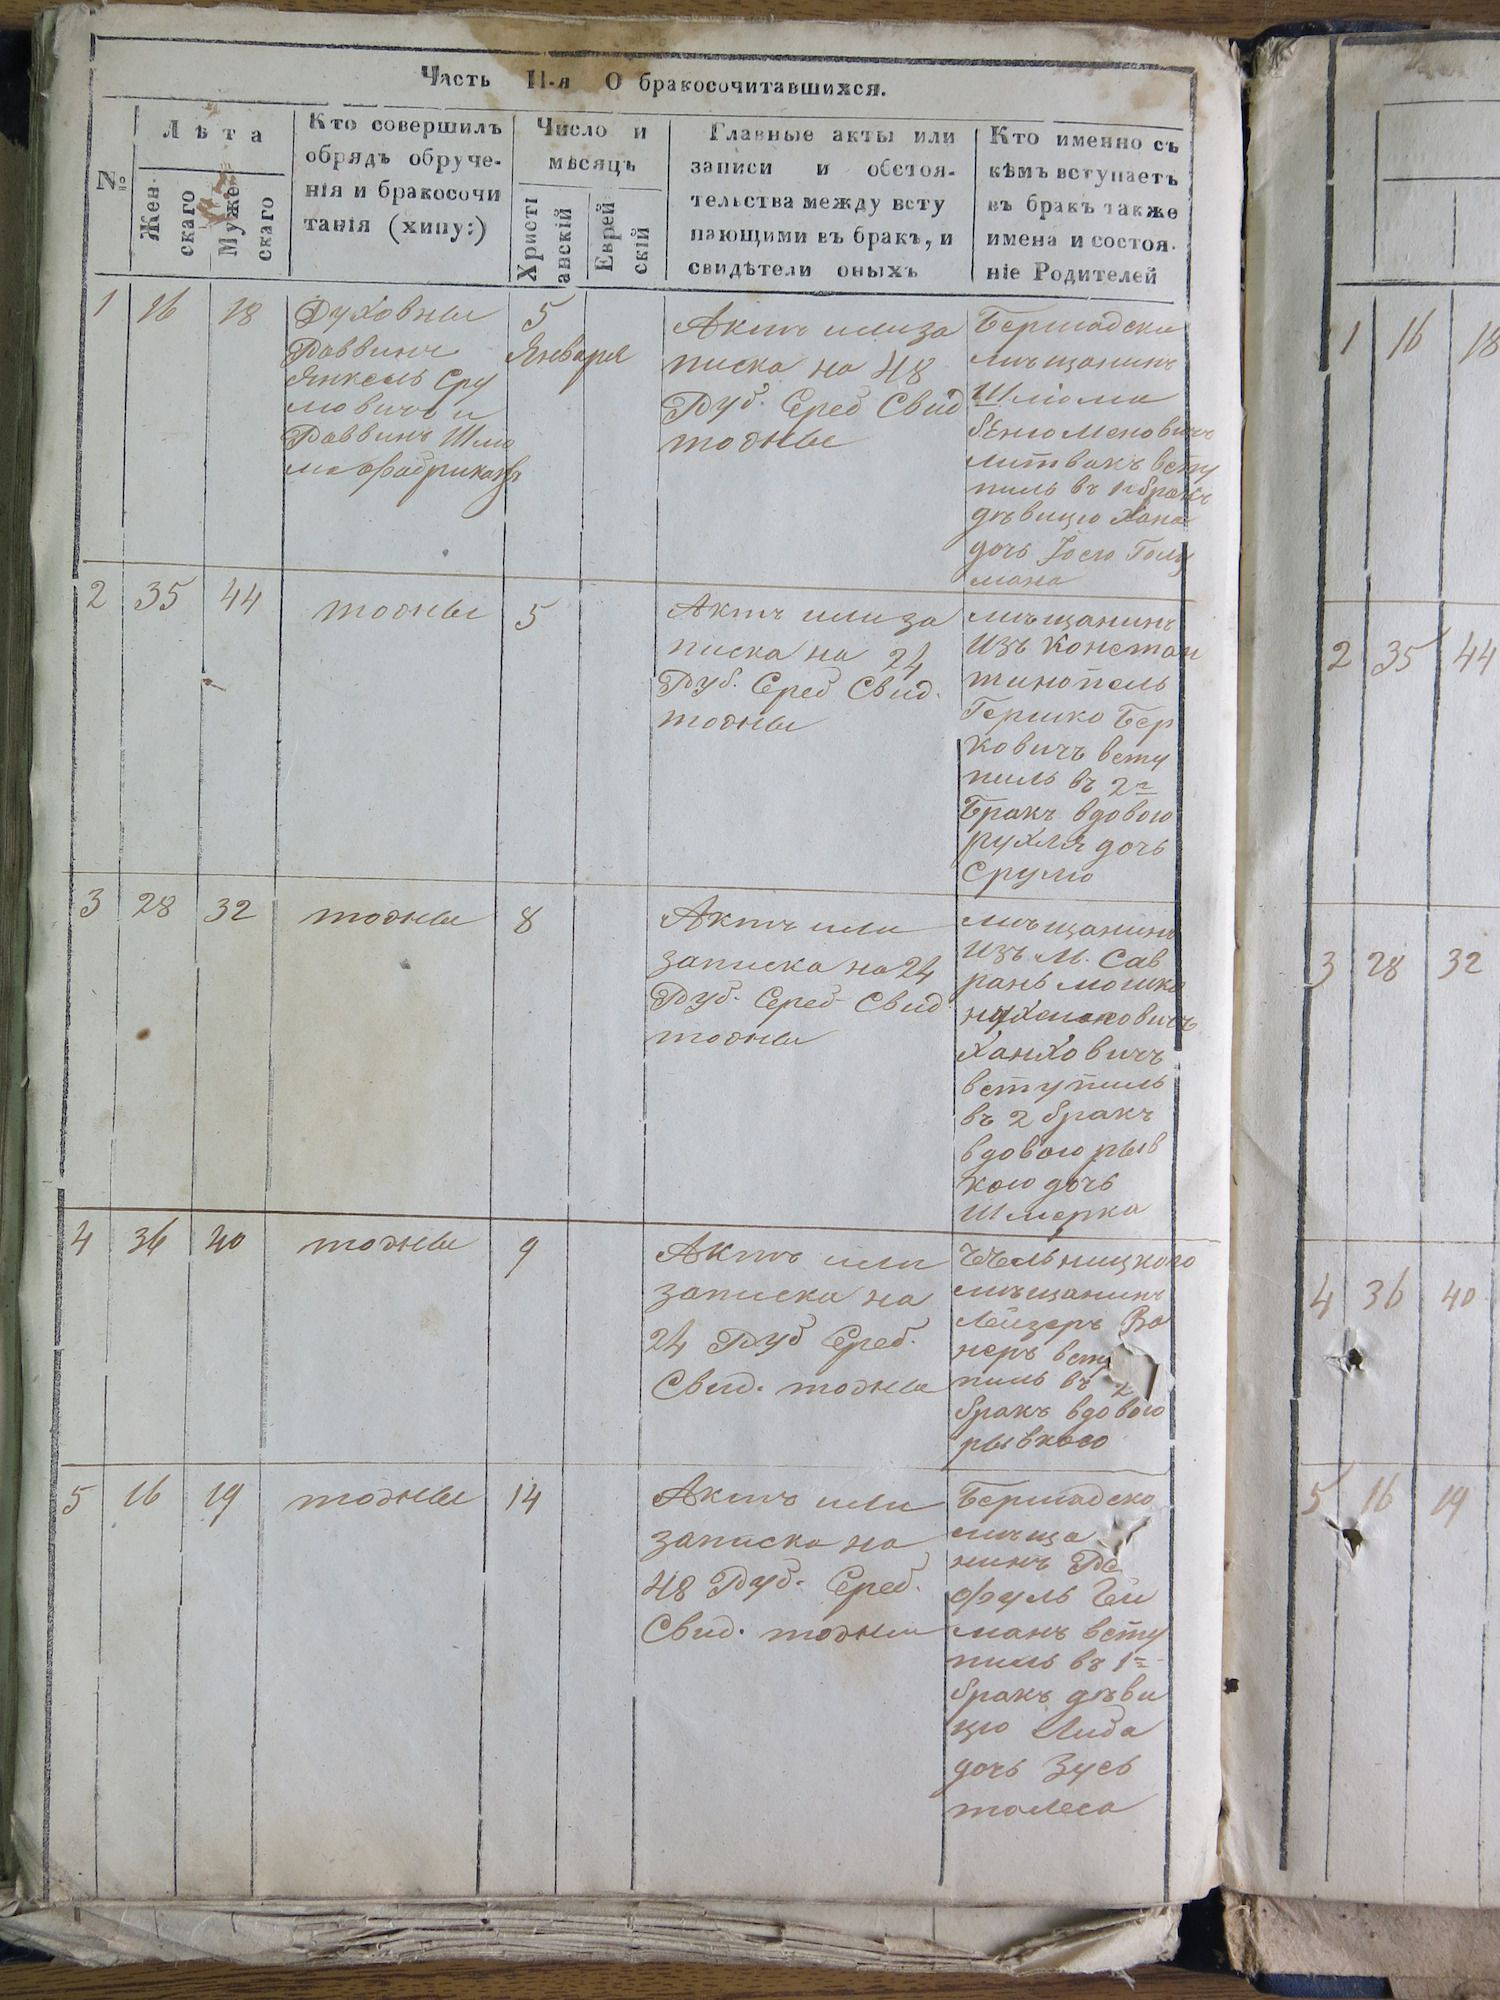 Часть II-я О бракосочитавшихся.
№
Лѣта
Женскаго
Мужескаго
Кто совершилъ
обрядъ обруче-
нія и бракосочи
танія (хипу:)
Число и
мѣсяцъ
Христі
анскій
Еврей
скій
Главные акты или
записи и обстоя-
тельства между всту
пающими въ бракъ, и
свидѣтели оныхъ
Кто именно съ
кѣмъ вступаетъ
въ бракъ также
имена и состоя-
ніе Родителей
1 16 18
Духовны
Раввинъ
Янкель Сру
мовичъ и
Раввинъ Шмо
5
Января
Актъ или за
писка на 48
Руб. Сереб Свид
тодны
Бершадски
мѣщанинъ
Шліома
литвакъ всту
пилъ въ 1й бракъ
дѣвицю Хана
дочь
мана
2 35 44
тодны
5
Актъ или за
писка на 24
Руб. Сереб Свид.
тодны
мѣщанинъ
изъ Констан
тинополь
Гершко Бер
ковичъ всту
пилъ въ 2й
Бракъ вдовою
рухля дочь
Срумо
3 28 32
тодны
8
Актъ или
записка на 24
Руб. Сереб Свид
тодны
мѣщанинъ
изъ М. Сав
рань мошко
Ханховичъ
вступилъ
въ 2 бракъ
вдовою рыв
кою дочь
Шмерка
4 36 40
тодны
9
Актъ или
записка на
24 Руб Сереб.
Свид. тодны
мѣщанинъ
Лейзеръ Ва
неръ всту
пилъ въ 2
бракъ вдовою
рывкою
5 16 19
тодны
14
Актъ или
записка на
48 Руб. Сереб.
Свид. тодны
Бершадско
мѣща
нинъ Ра
фуль Гей
манъ всту
пилъ въ 1й
бракъ дѣви
цю Либа
дочь Зусь
талеса
1 16 18
2 35 44
3 28 32
4 36 40
5 16 19